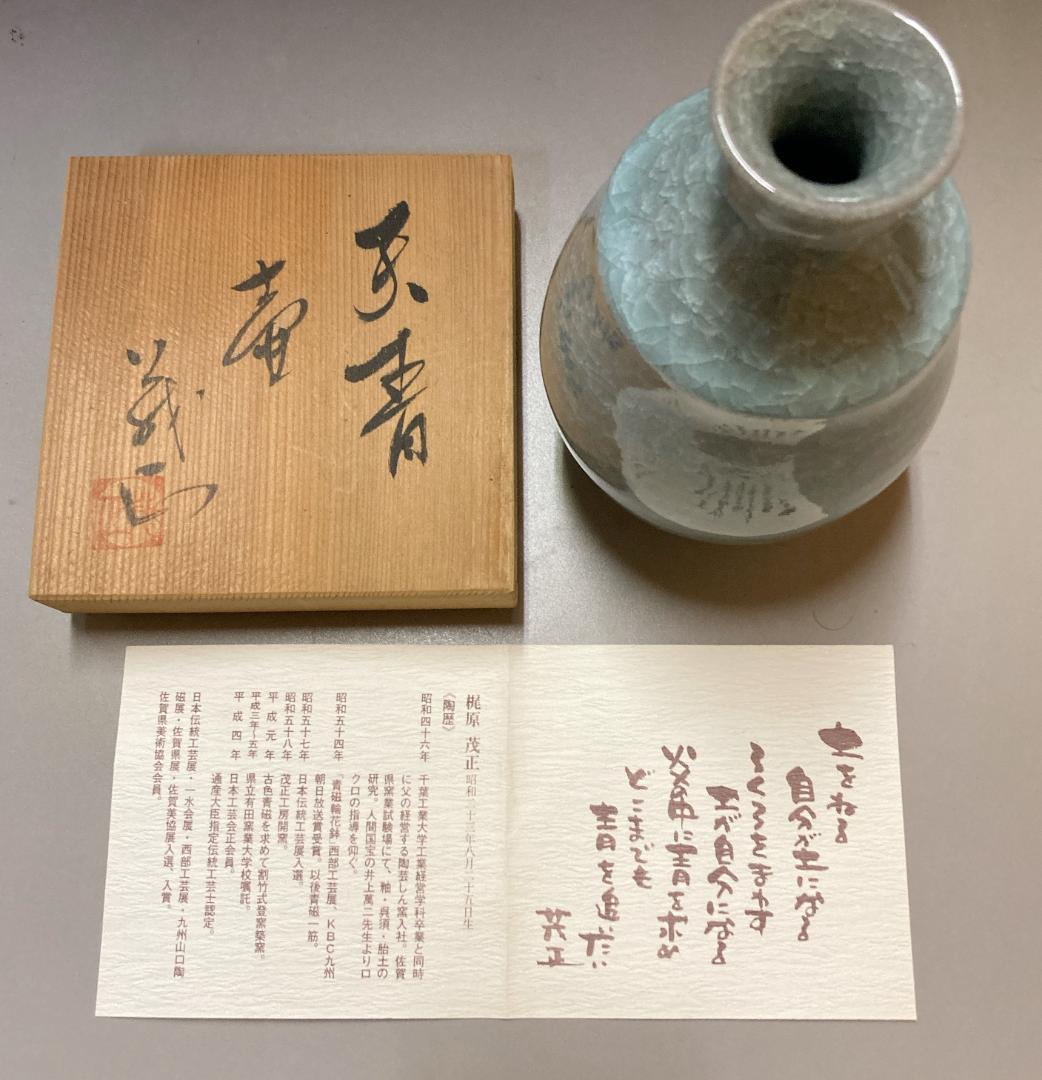 天青
壷
茂正
土をねる
自分が土になる
ろくろをまわす
土が自分になる
窯に青を求め
どこまでも
青を追いたい
茂正
梶原 茂正 昭和二十三年八月二十五日生
《陶歴》
昭和四十六年 千葉工業大学工業経営学科卒業と同時
に父の経営する陶芸しん窯入社。佐賀
県窯業試験場にて、釉・呉須・胎土の
研究。人間国宝の井上萬二先生よりロ
クロの指導を仰ぐ。
昭和五十四年 「青磁輪花鉢」西部工芸展、KBC九州
朝日放送賞受賞。以後青磁一筋。
昭和五十七年 日本伝統工芸展入選。
昭和五十八年 茂正工房開窯。
平成元年 古色青磁を求めて割竹式登窯築窯。
平成三年〜五年 県立有田窯業大学校嘱託。
平成四年 日本工芸会正会員。
通産大臣指定伝統工芸士認定。
日本伝統工芸展・一水会展・西部工芸展・九州山口陶
磁展・佐賀県展・佐賀美協展入選、入賞。
佐賀県美術協会会員。